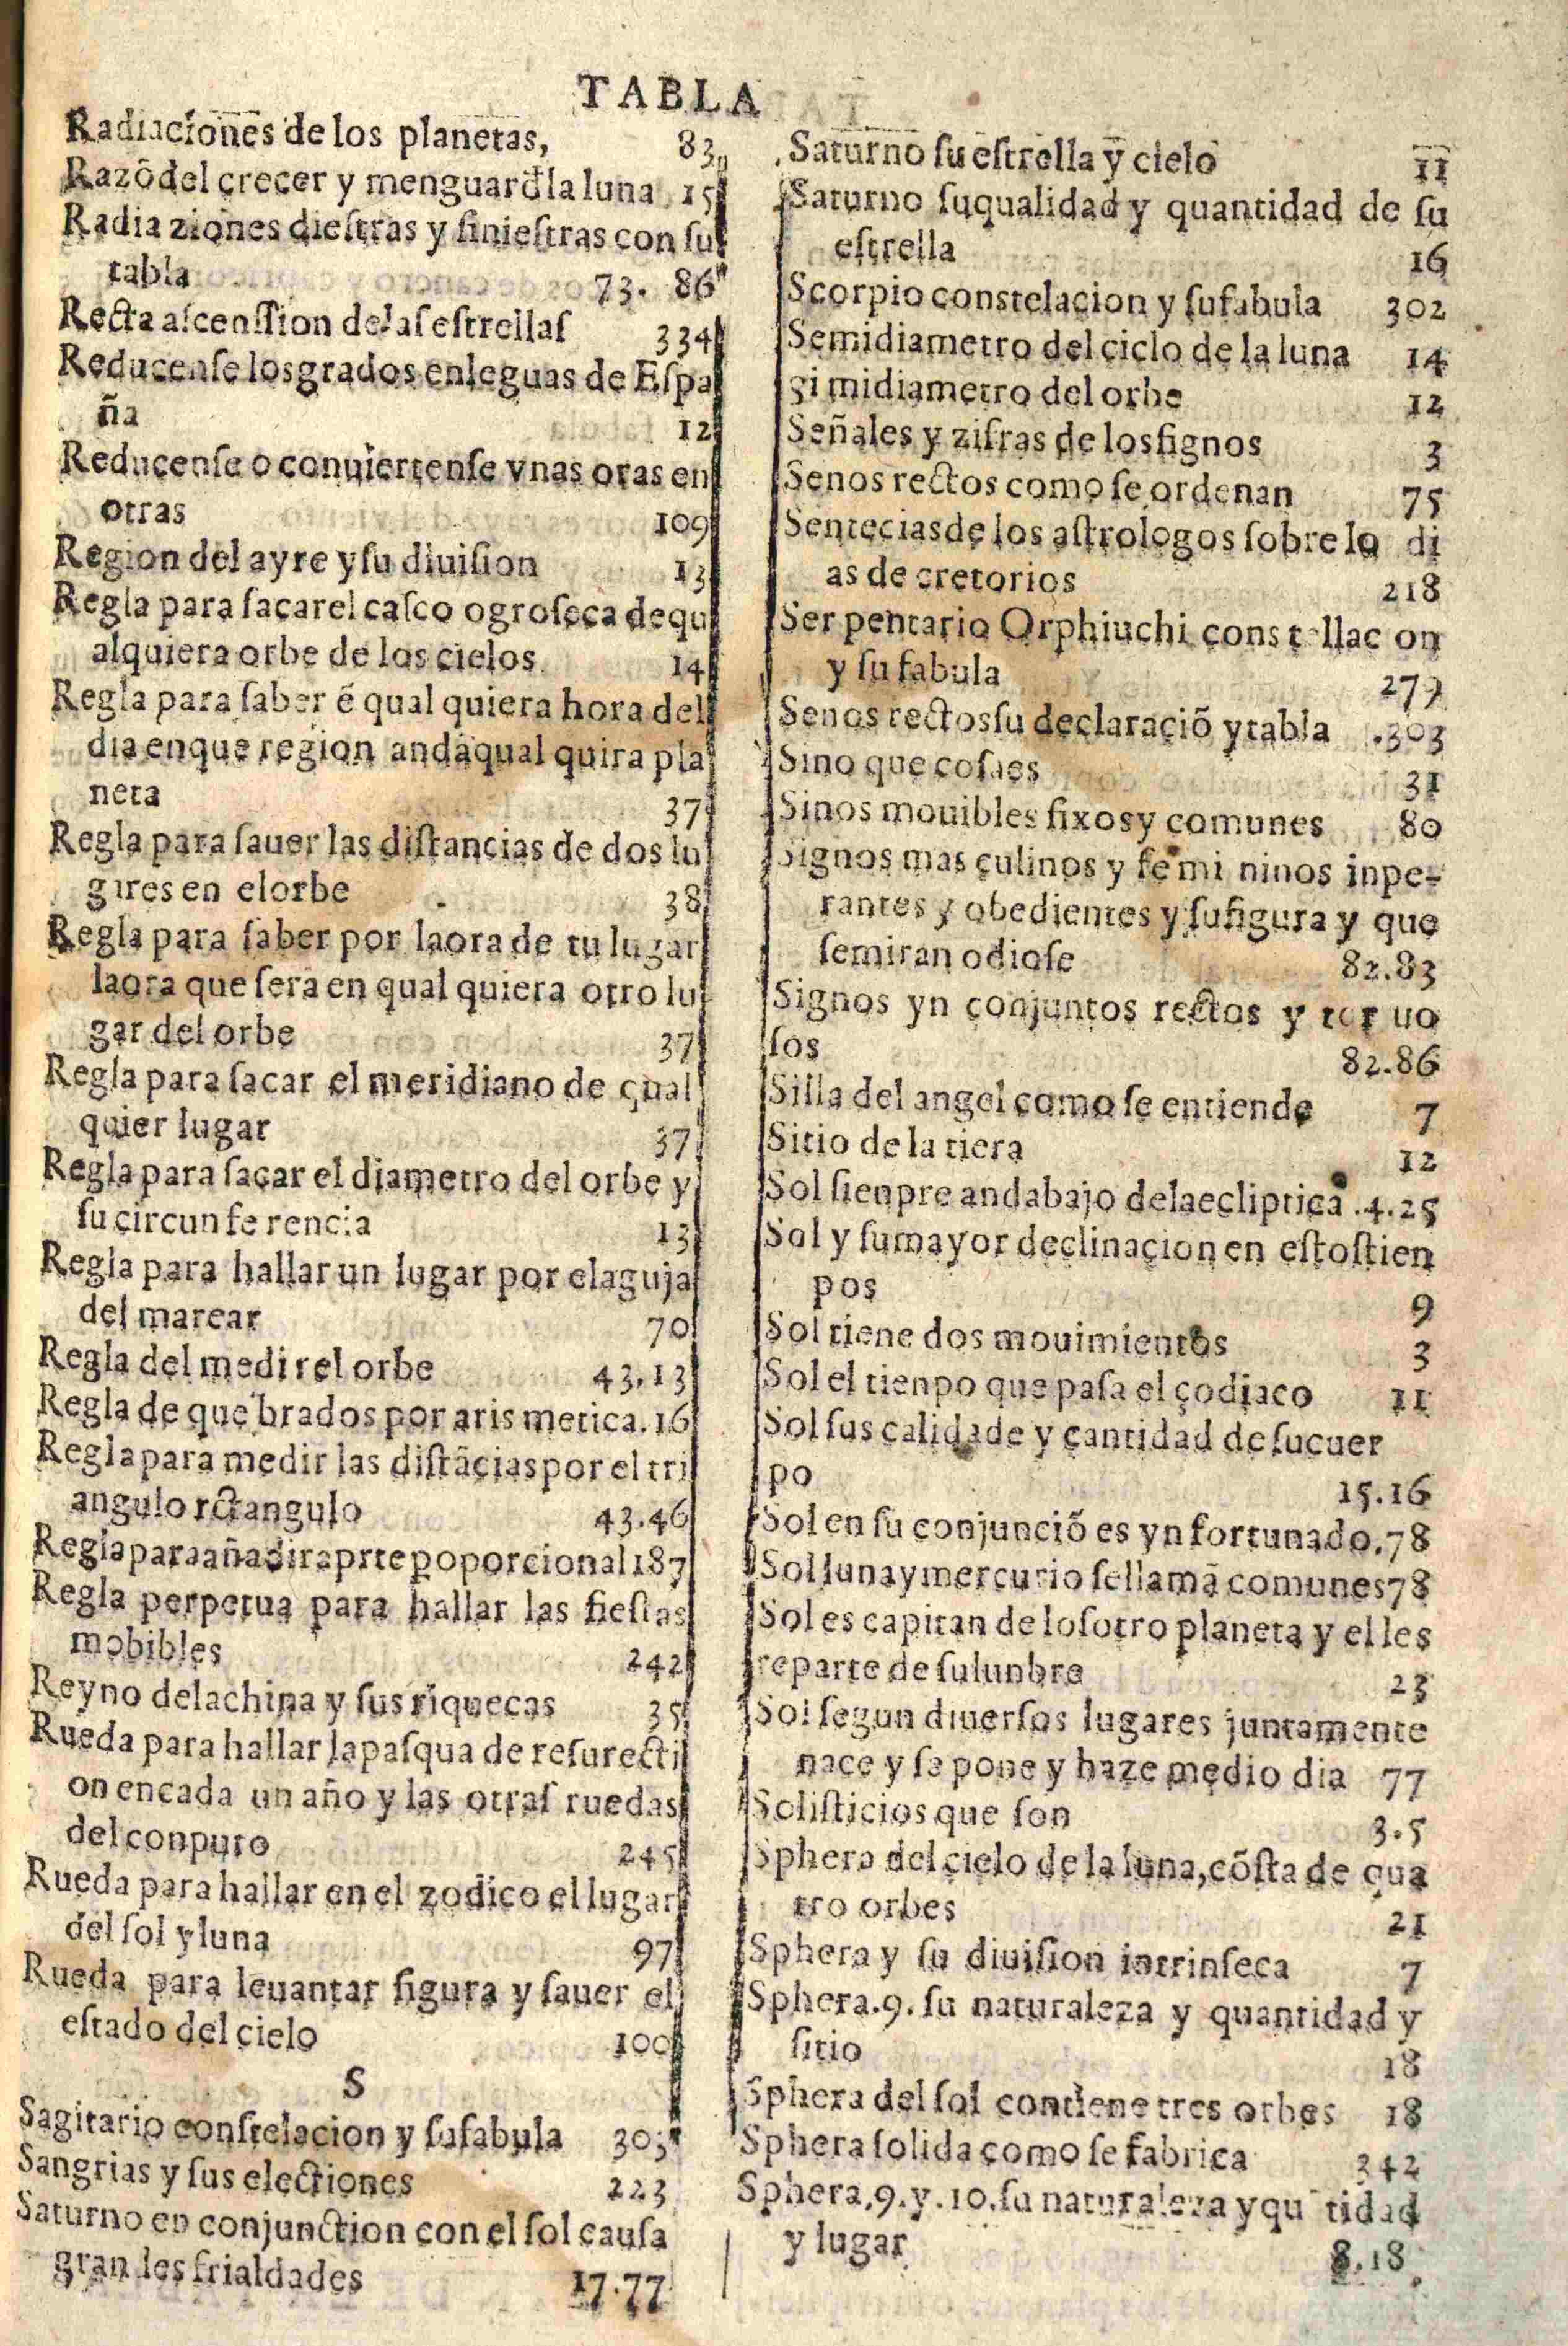 TABLA
Radiaciones de los planetas, 83
Razõ del crecer y menguar d̃la luna 15
Radia ziones dieſtras y ſinieſtras con ſu
tabla 73. 86
Recta aſcenſſion delaſ eſtrellaſ 334
Reducenſe losgrados enleguas de Eſpa
ña 12
Reducenſe o conuiertenſe vnas oras en
otras 109
Region del ayre yſu diuiſion 13
Regla para ſacarel caſco ogroſeça dequ
alquiera orbe de los cielos 14
Regla para ſaber ẽ qual quiera hora del
dia enque region andaqual quira pla
neta 37
Regla para ſauer las diſtancias de dos lu
gares en elorbe 38
Regla para ſaber por laora de tu lugar
laora que ſera en qual quiera otro lu
gar del orbe 37
Regla para ſacar el meridiano de çual
quier lugar 37
Regla para ſaçar el diametro del orbe y
ſu circunfe rencia 13
Regla para hallar un lugar por elaguja
del marear 70
Regla del medi rel orbe 43.13
Regla de que brados por aris metica. 16
Regla para medir las diſtãçias por el tri
angulo rctangulo 43.46
Regla para añadir a prte poporcional 187
Regla perpetua para hallar las fieſtas
mobibles 242
Reyno delachina y ſus riquecas 35
Rueda para hallar lapaſqua de reſurecti
on encada un año y las otraſ ruedas
del conputo 245
Rueda para hallar en el zodico el lugar
del ſol y luna 97
Rueda para leuantar figura y ſauer el
eſtado del cielo 100
S
Sagitario conſtelacion y ſufabula 303
Sangrias y ſus electiones 223
Saturno en conjunction con el ſol cauſa
grandes frialdades 17.77
Saturno ſu eſtrella y cielo 11
Saturno ſuqualidad y quantidad de ſu
eſtrella 16
Scorpio conſtelacion y ſufabula 302
Semidiametro del ciclo de la luna 14
midiametro del orbe 12
Señales y ziſras de losſignos 3
Senos rectos como ſe ordenan 75
Senteciasde los aſtrologos ſobre lo di
as de cretorios 218
Ser pentario Orphiuchi conſt llac on
y ſu fabula 279
Senos rectosſu declaraçiõ ytabla .303
Sino que coſaes 31
Sinos mouibles fixosy comunes 80
Signos mas çulinos y fe mi ninos inpe-
rantes y obedientes y ſufigura y que
ſemiran odioſe 82.83
Signos yn conjuntos rectos y tor uo
ſos 82.86
Silla del angel como ſe entiende 7
Sitio de la tiera 12
Sol ſienpre andabajo delaecliptica .4.25
Sol y ſumayor declinaçion en eſtoſtien
pos 9
Sol tiene dos mouimientos 3
Sol el tienpo que paſa el çodiaco 11
Sol ſus calidade y çantidad de ſucuer
po 15.16
Sol en ſu conjunciõ es yn fortunado.78
Sol luna y mercurio ſellamã comunes78
Sol es capitan de loſotro planeta y el les
reparte de ſulunbre 23
Sol ſegun diuerſos lugares juntamente
nace y ſe pone y haze medio dia 77
Soliſticios que ſon 3.5
Sphera del cielo de la luna, cõſta de qua
tro orbes 21
Sphera y ſu diuiſion intrinſeca 7
Sphera.9. ſu naturaleza y quantidad y
ſitio 18
Sphera del ſol contiene tres orbes 18
Sphera ſolida como ſe fabrica 342
Sphera.9.y.10.ſu naturaleza y qu tidad
y lugar 8.18